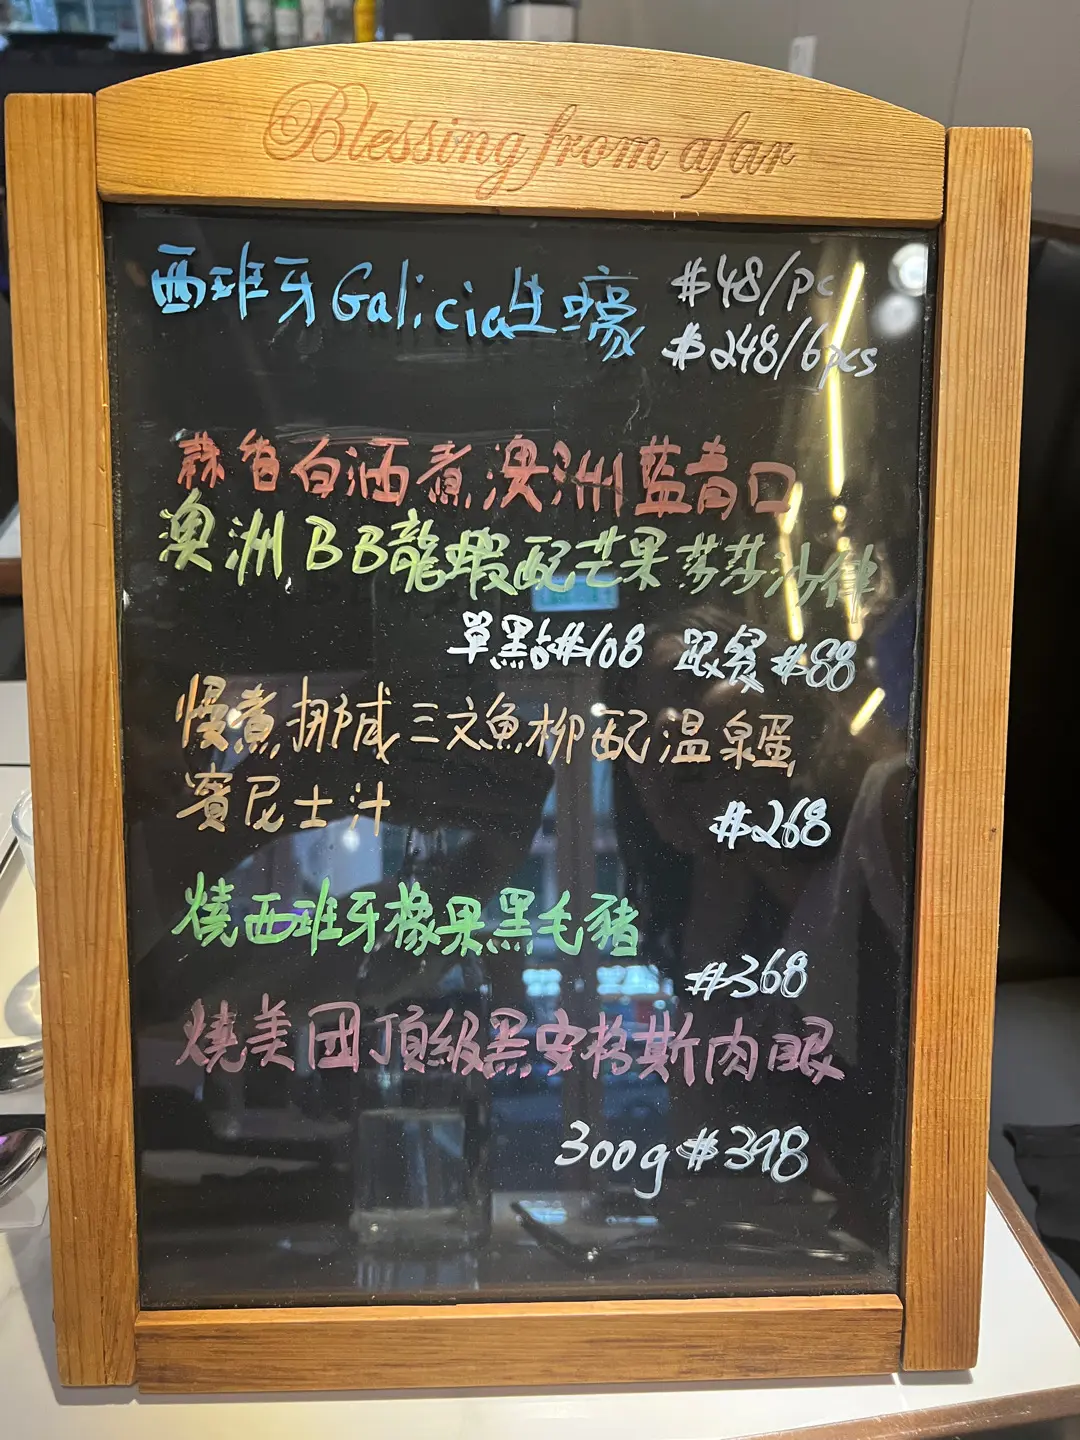 Blessing from afar
西班牙Galicia生蠔 $48/pc
$248/6pcs
蒜香白酒煮澳洲藍青口
澳洲BB龍蝦配芒果莎莎沙律
單點$108 跟餐$88
慢煮挪威三文魚柳配温泉蛋
賓尼士汁
$268
燒西班牙橡果黑毛豬
$368
燒美国頂級黑安格斯肉眼
300g $398